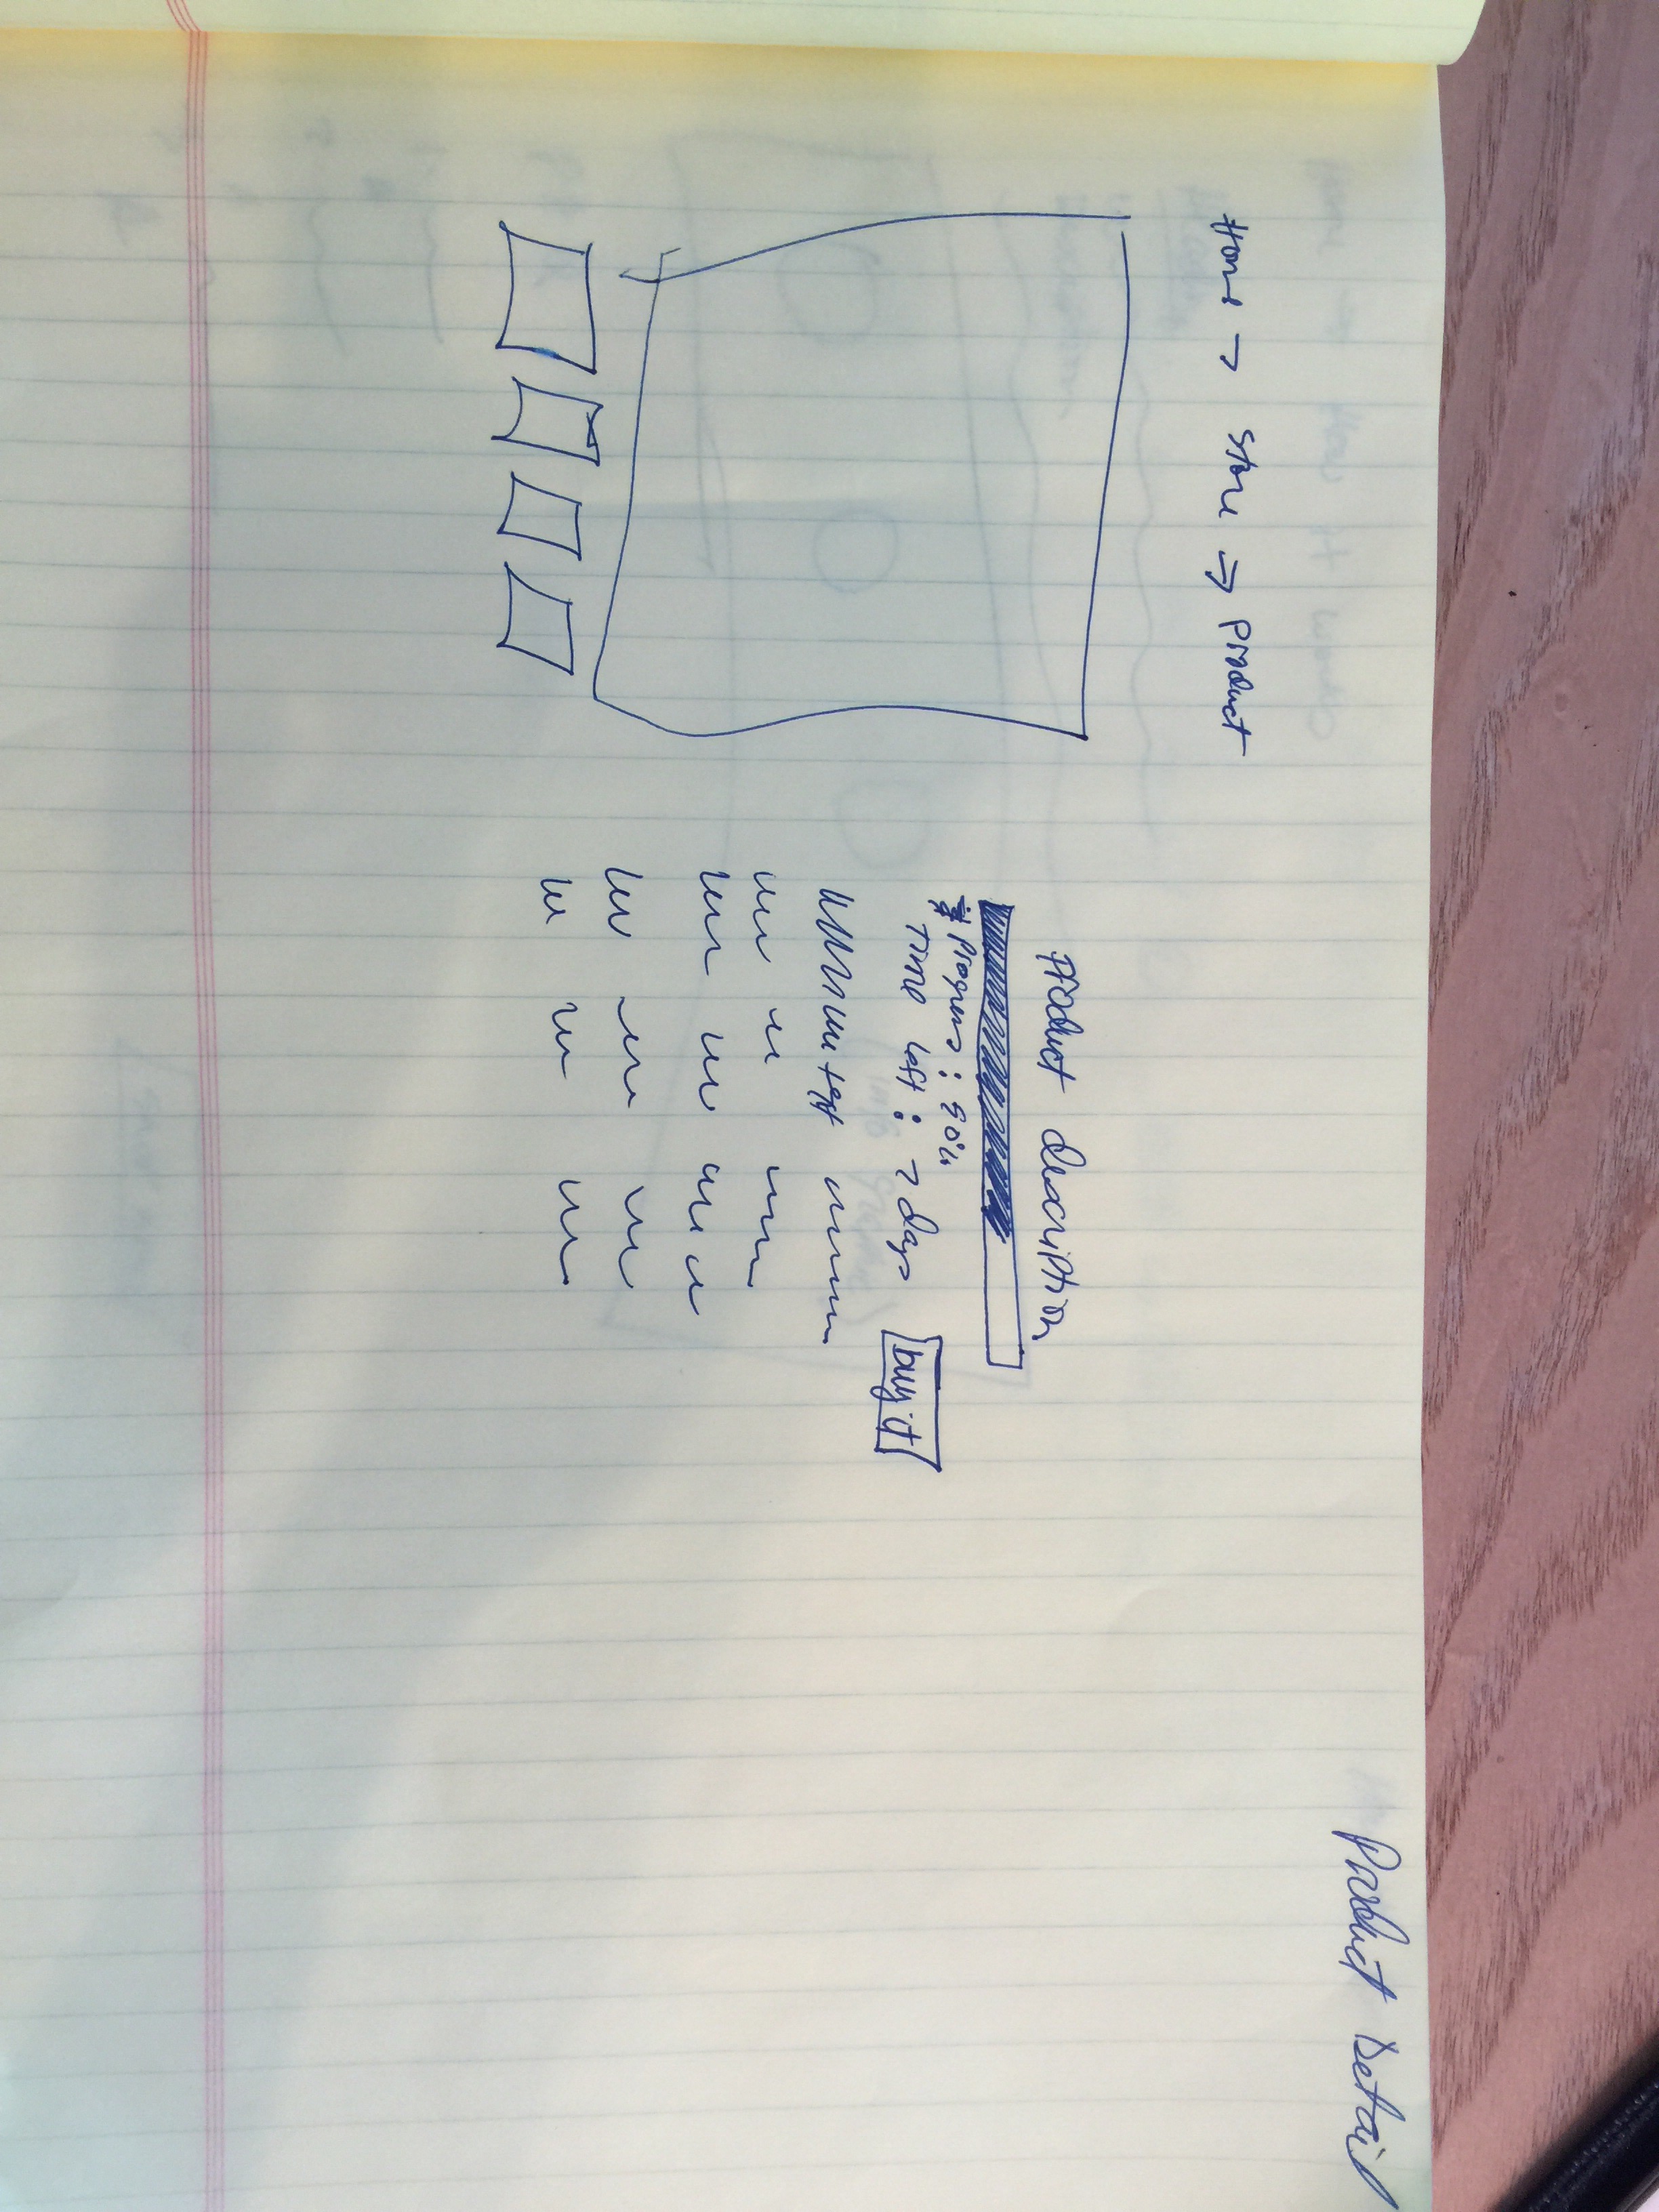 Product Detail
Home → Store → Product
Product description
Progress : 90%
Time left : 7 days
buy it
text